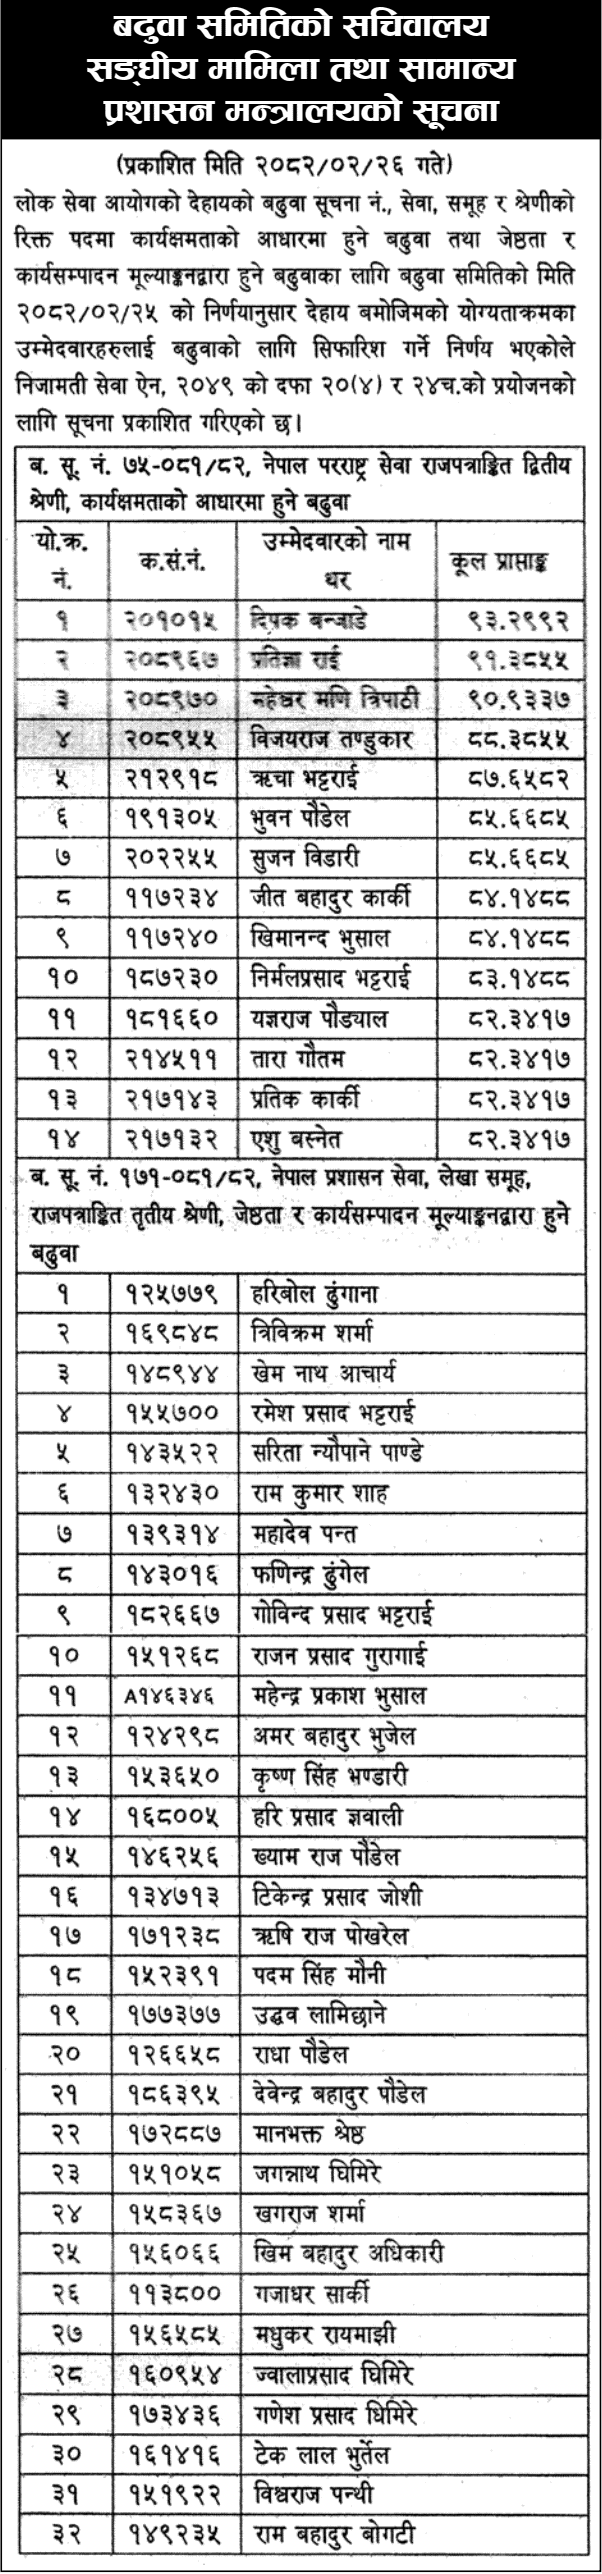 बढुवा समितिको सचिवालय
सङ्घीय मामिला तथा सामान्य
प्रशासन मन्त्रालयको सूचना
(प्रकाशित मिति २०८२/०२/२६ गते)
लोक सेवा आयोगको देहायको बढुवा सूचना नं., सेवा, समूह र श्रेणीको
रिक्त पदमा कार्यक्षमताको आधारमा हुने बढुवा तथा जेष्ठता र
कार्यसम्पादन मूल्याङ्कनद्वारा हुने बढुवाका लागि बढुवा समितिको मिति
२०८२/०२/२५ को निर्णयानुसार देहाय बमोजिमको योग्यताक्रमका
उम्मेदवारहरुलाई बढुवाको लागि सिफारिश गर्ने निर्णय भएकोले
निजामती सेवा ऐन, २०४९ को दफा २०(४) र २४च.को प्रयोजनको
लागि सूचना प्रकाशित गरिएको छ।
ब. सू. नं. ७५-०८१/८२, नेपाल परराष्ट्र सेवा राजपत्राङ्कित द्वितीय
श्रेणी, कार्यक्षमताको आधारमा हुने बढुवा
यो.क्र. नं. क.सं.नं. उम्मेदवारको नाम थर कूल प्राप्ताङ्क
१ २०१०१५ दिपक बन्जाडे ९३.२९९२
२ २०८९६७ प्रतिज्ञा राई ९१.३८५५
३ २०८९७० महेश्वर मणि त्रिपाठी ९०.९३३७
४ २०८९५५ विजयराज तण्डुकार ८८.३८५५
५ २१२९१८ ऋचा भट्टराई ८७.६५८२
६ १९१३०५ भुवन पौडेल ८५.६६८५
७ २०२२५५ सुजन विडारी ८५.६६८५
८ ११७२३४ जीत बहादुर कार्की ८४.१४८८
९ ११७२४० खिमानन्द भुसाल ८४.१४८८
१० १८७२३० निर्मलप्रसाद भट्टराई ८३.१४८८
११ १८१६६० यज्ञराज पौड्याल ८२.३४१७
१२ २१४५११ तारा गौतम ८२.३४१७
१३ २१७१४३ प्रतिक कार्की ८२.३४१७
१४ २१७१३२ एशु बस्नेत ८२.३४१७
ब. सू. नं. १७१-०८१/८२, नेपाल प्रशासन सेवा, लेखा समूह,
राजपत्राङ्कित तृतीय श्रेणी, जेष्ठता र कार्यसम्पादन मूल्याङ्कनद्वारा हुने
बढुवा
१ १२५७७९ हरिबोल ढुंगाना
२ १६९८४८ त्रिविक्रम शर्मा
३ १४८९४४ खेम नाथ आचार्य
४ १५५७०० रमेश प्रसाद भट्टराई
५ १४३५२२ सरिता न्यौपाने पाण्डे
६ १३२४३० राम कुमार शाह
७ १३९३१४ महादेव पन्त
८ १४३०१६ फणिन्द्र ढुंगेल
९ १८२६६७ गोविन्द प्रसाद भट्टराई
१० १५१२६८ राजन प्रसाद गुरागाई
११ A१४६३४६ महेन्द्र प्रकाश भुसाल
१२ १२४२९८ अमर बहादुर भुजेल
१३ १५३६५० कृष्ण सिंह भण्डारी
१४ १६८००५ हरि प्रसाद ज्ञवाली
१५ १४६२५६ ख्याम राज पौडेल
१६ १३४७१३ टिकेन्द्र प्रसाद जोशी
१७ १७१२३८ ऋषि राज पोखरेल
१८ १५२३९१ पदम सिंह मौनी
१९ १७७३७७ उद्धव लामिछाने
२० १२६६५८ राधा पौडेल
२१ १८६३९५ देवेन्द्र बहादुर पौडेल
२२ १७२८८७ मानभक्त श्रेष्ठ
२३ १५१०५८ जगन्नाथ घिमिरे
२४ १५८३६७ खगराज शर्मा
२५ १५६०६६ खिम बहादुर अधिकारी
२६ ११३८०० गजाधर सार्की
२७ १५६५८५ मधुकर रायमाझी
२८ १६०९५४ ज्वालाप्रसाद घिमिरे
२९ १७३४३६ गणेश प्रसाद घिमिरे
३० १६१४१६ टेक लाल भुर्तेल
३१ १५१९२२ विश्वराज पन्थी
३२ १४९२३५ राम बहादुर बोगटी